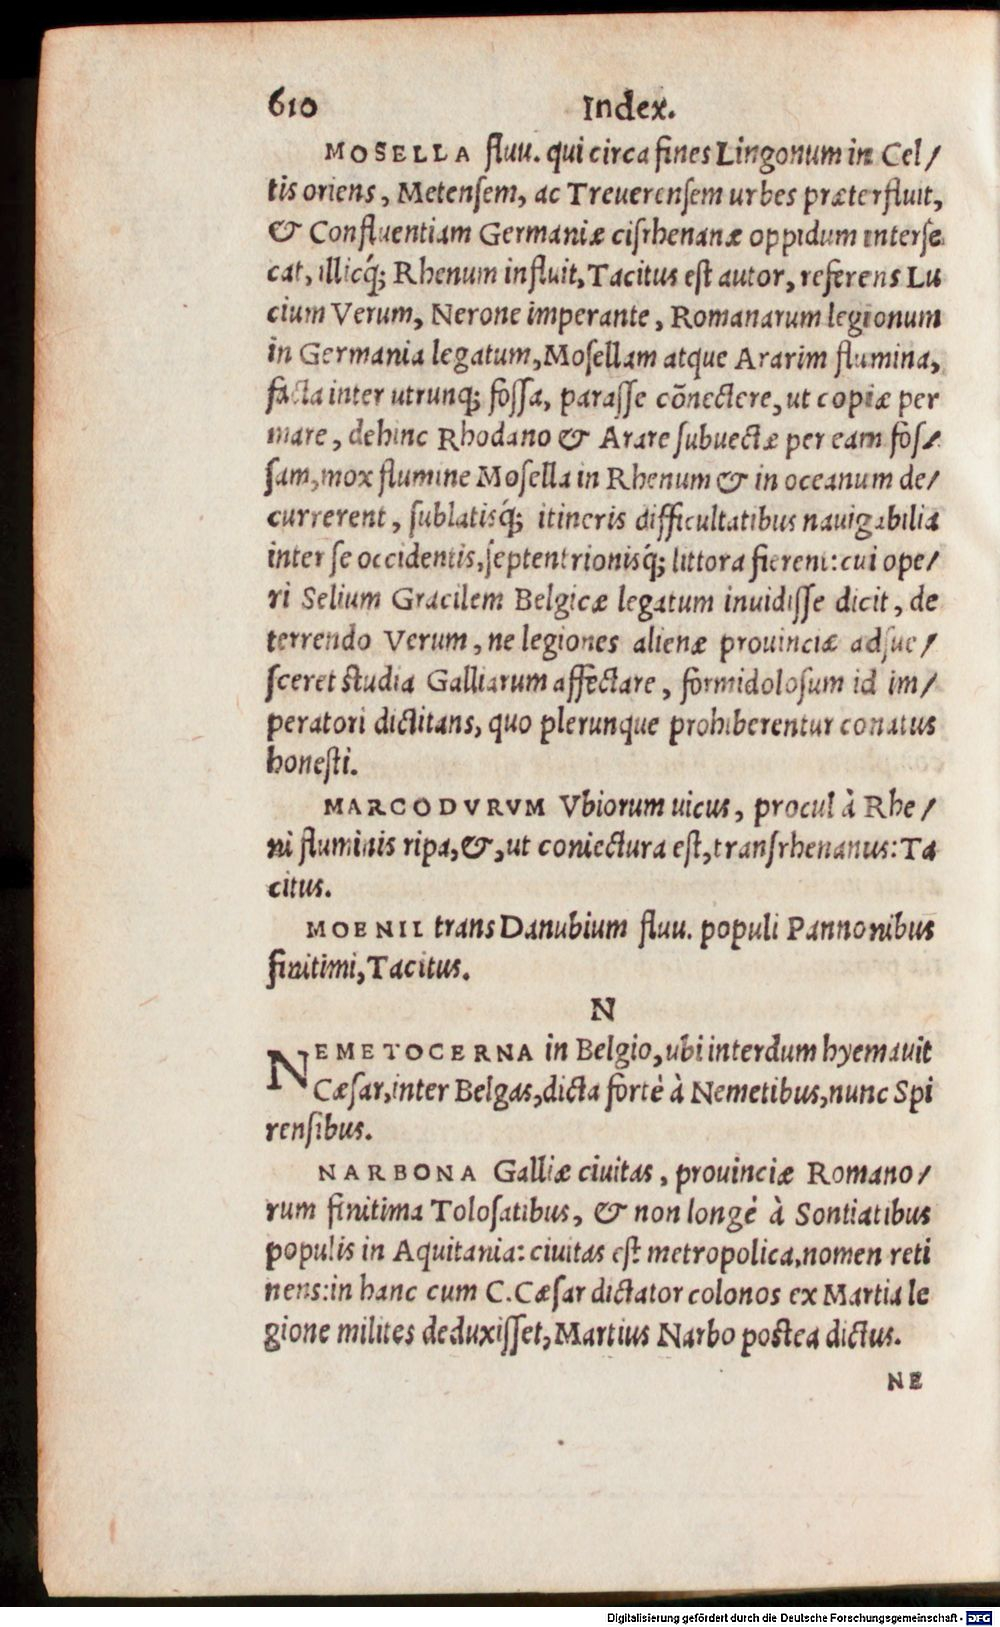 610 Index.
MOSELLA fluu. qui circa fines Lingonum in Cel/
tis oriens, Metensem, ac Treuerensem urbes præterfluit,
& Confluentiam Germaniæ cisrhenanæ oppidum interse
cat, illicq́; Rhenum influit, Tacitus est autor, referens Lu
cium Verum, Nerone imperante, Romanarum legionum
in Germania legatum, Mosellam atque Ararim flumina,
facta inter utrunq; fossa, parasse cõnectere, ut copiæ per
mare, dehinc Rhodano & Arare subuectæ per eam fos/
sam, mox flumine Mosella in Rhenum & in oceanum de/
currerent, sublatisq́; itineris difficultatibus nauigabilia
inter se occidentis, septentrionisq́; littora fierent: cui ope/
ri Selium Gracilem Belgicæ legatum inuidisse dicit, de
terrendo Verum, ne legiones alienæ prouinciæ adsue/
sceret studia Galliarum affectare, formidolosum id im/
peratori dictitans, quo plerunque prohiberentur conatus
honesti.
MARCODVRVM Vbiorum uicus, procul à Rhe/
ni fluminis ripa, &, ut coniectura est, transrhenanus: Ta
citus.
MOENII trans Danubium fluu. populi Pannonibus
finitimi, Tacitus.
N
NEMETOCERNA in Belgio, ubi interdum hyemauit
Cæsar, inter Belgas, dicta fortè à Nemetibus, nunc Spi
rensibus.
NARBONA Galliæ ciuitas, prouinciæ Romano/
rum finitima Tolosatibus, & non longè à Sontiatibus
populis in Aquitania: ciuitas est metropolica, nomen reti
nens: in hanc cum C. Cæsar dictator colonos ex Martia le
gione milites deduxisset, Martius Narbo postea dictus.
NE
Digitalisierung gefördert durch die Deutsche Forschungsgemeinschaft - DFG